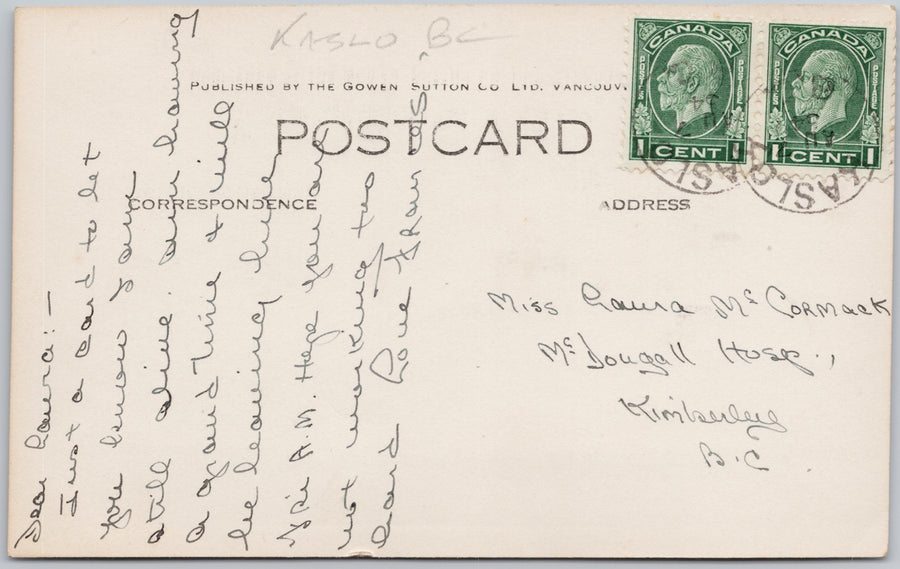 KASLO BC
PUBLISHED BY THE GOWEN SUTTON CO LTD. VANCOUV
POSTCARD
CORRESPONDENCE
ADDRESS
CANADA
POSTES POSTAGE
1 CENT 1
CANADA
POSTES POSTAGE
1 CENT 1
KASLO
KASLO
AU 34
Dear Laura:-
Just a card to let
you know I am
still alive. am having
a grand time & will
be leaving here
Fri A.M. Hope you are
not working too
hard Love from
Miss Laura McCormack
McDougall Hosp.,
Kimberley
B.C.